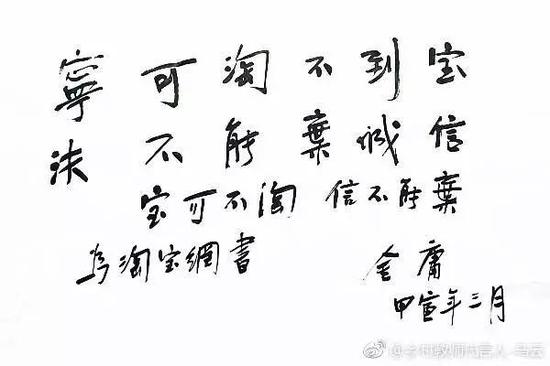 寧可淘不到宝
決不能棄诚信
宝可不淘 信不能棄
為淘宝網書
金庸
甲 年三月
@乡村教师代言人-马云